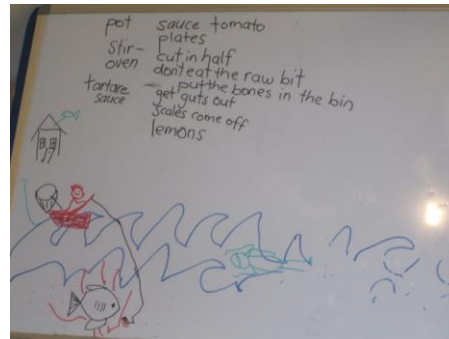 pot sauce tomato
plates
stir- cut in half
oven don't eat the raw bit
tartare - put the bones in the bin
sauce get guts out
scales come off
lemons